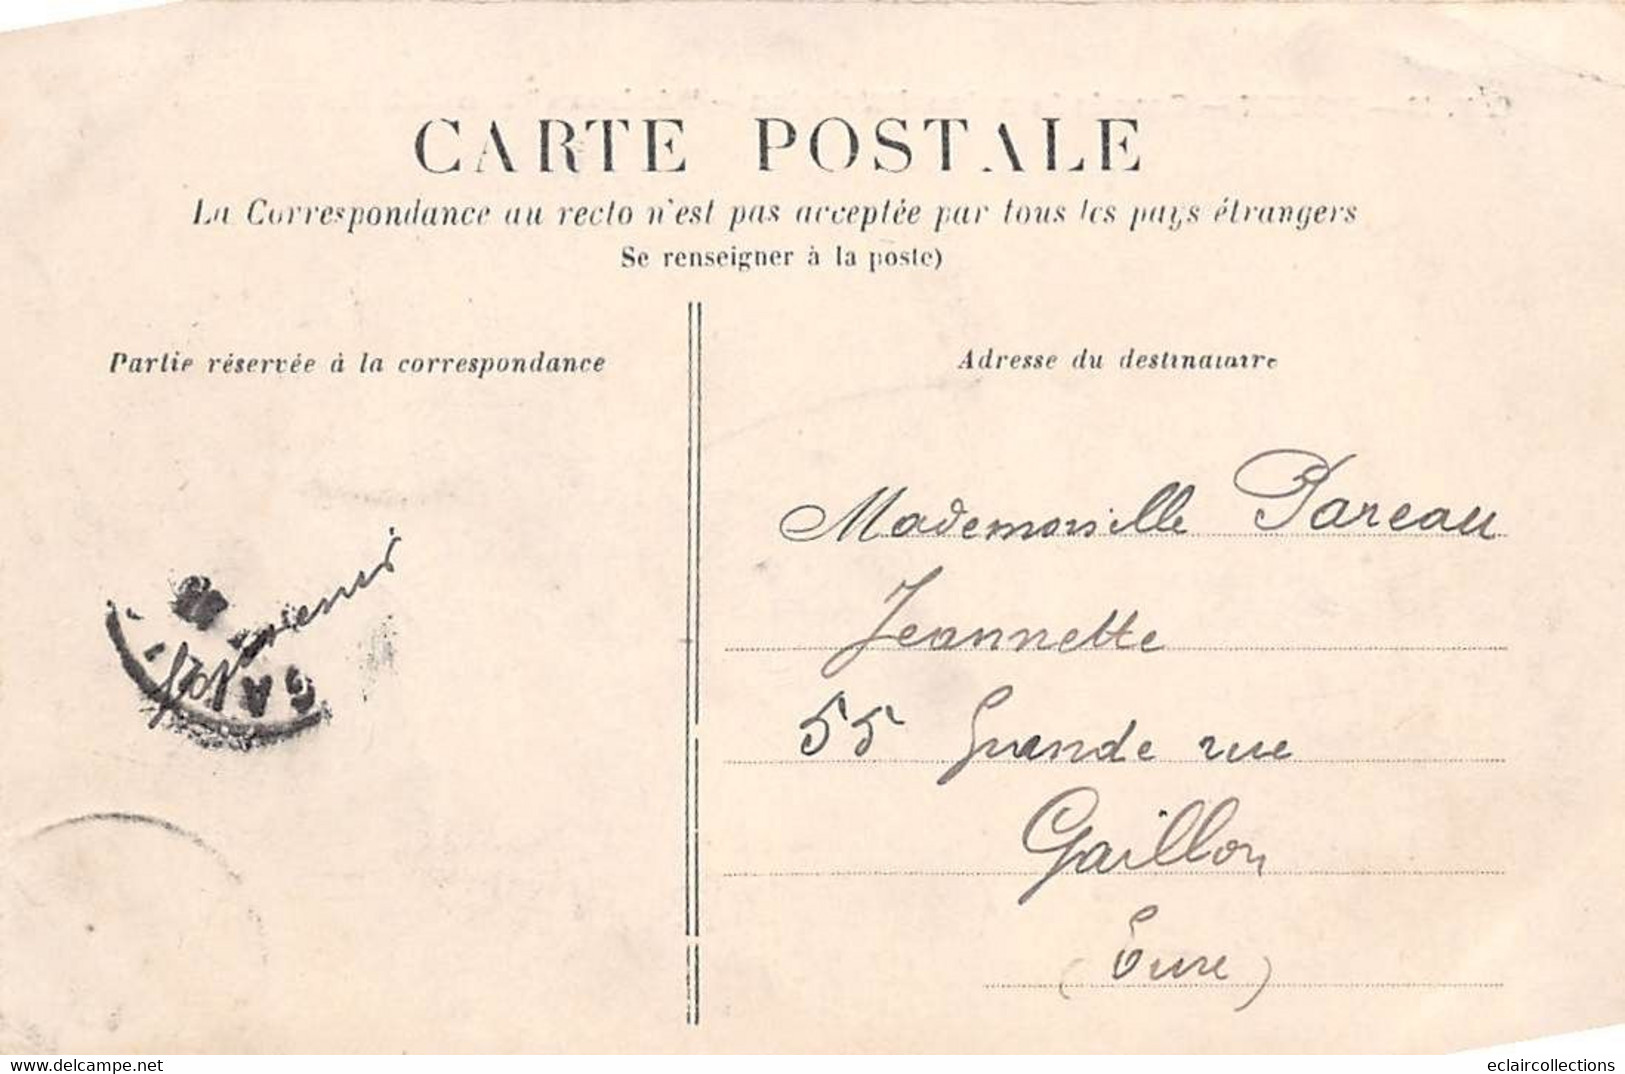 CARTE POSTALE
La Correspondance au recto n'est pas acceptée par tous les pays étrangers
Se renseigner à la poste)
Partie réservée à la correspondance
Adresse du destinataire
Mademoiselle Pareau
Jeannette
55 Grande rue
Gaillon
(Eure)
GA
delcampe.net
eclaircollections